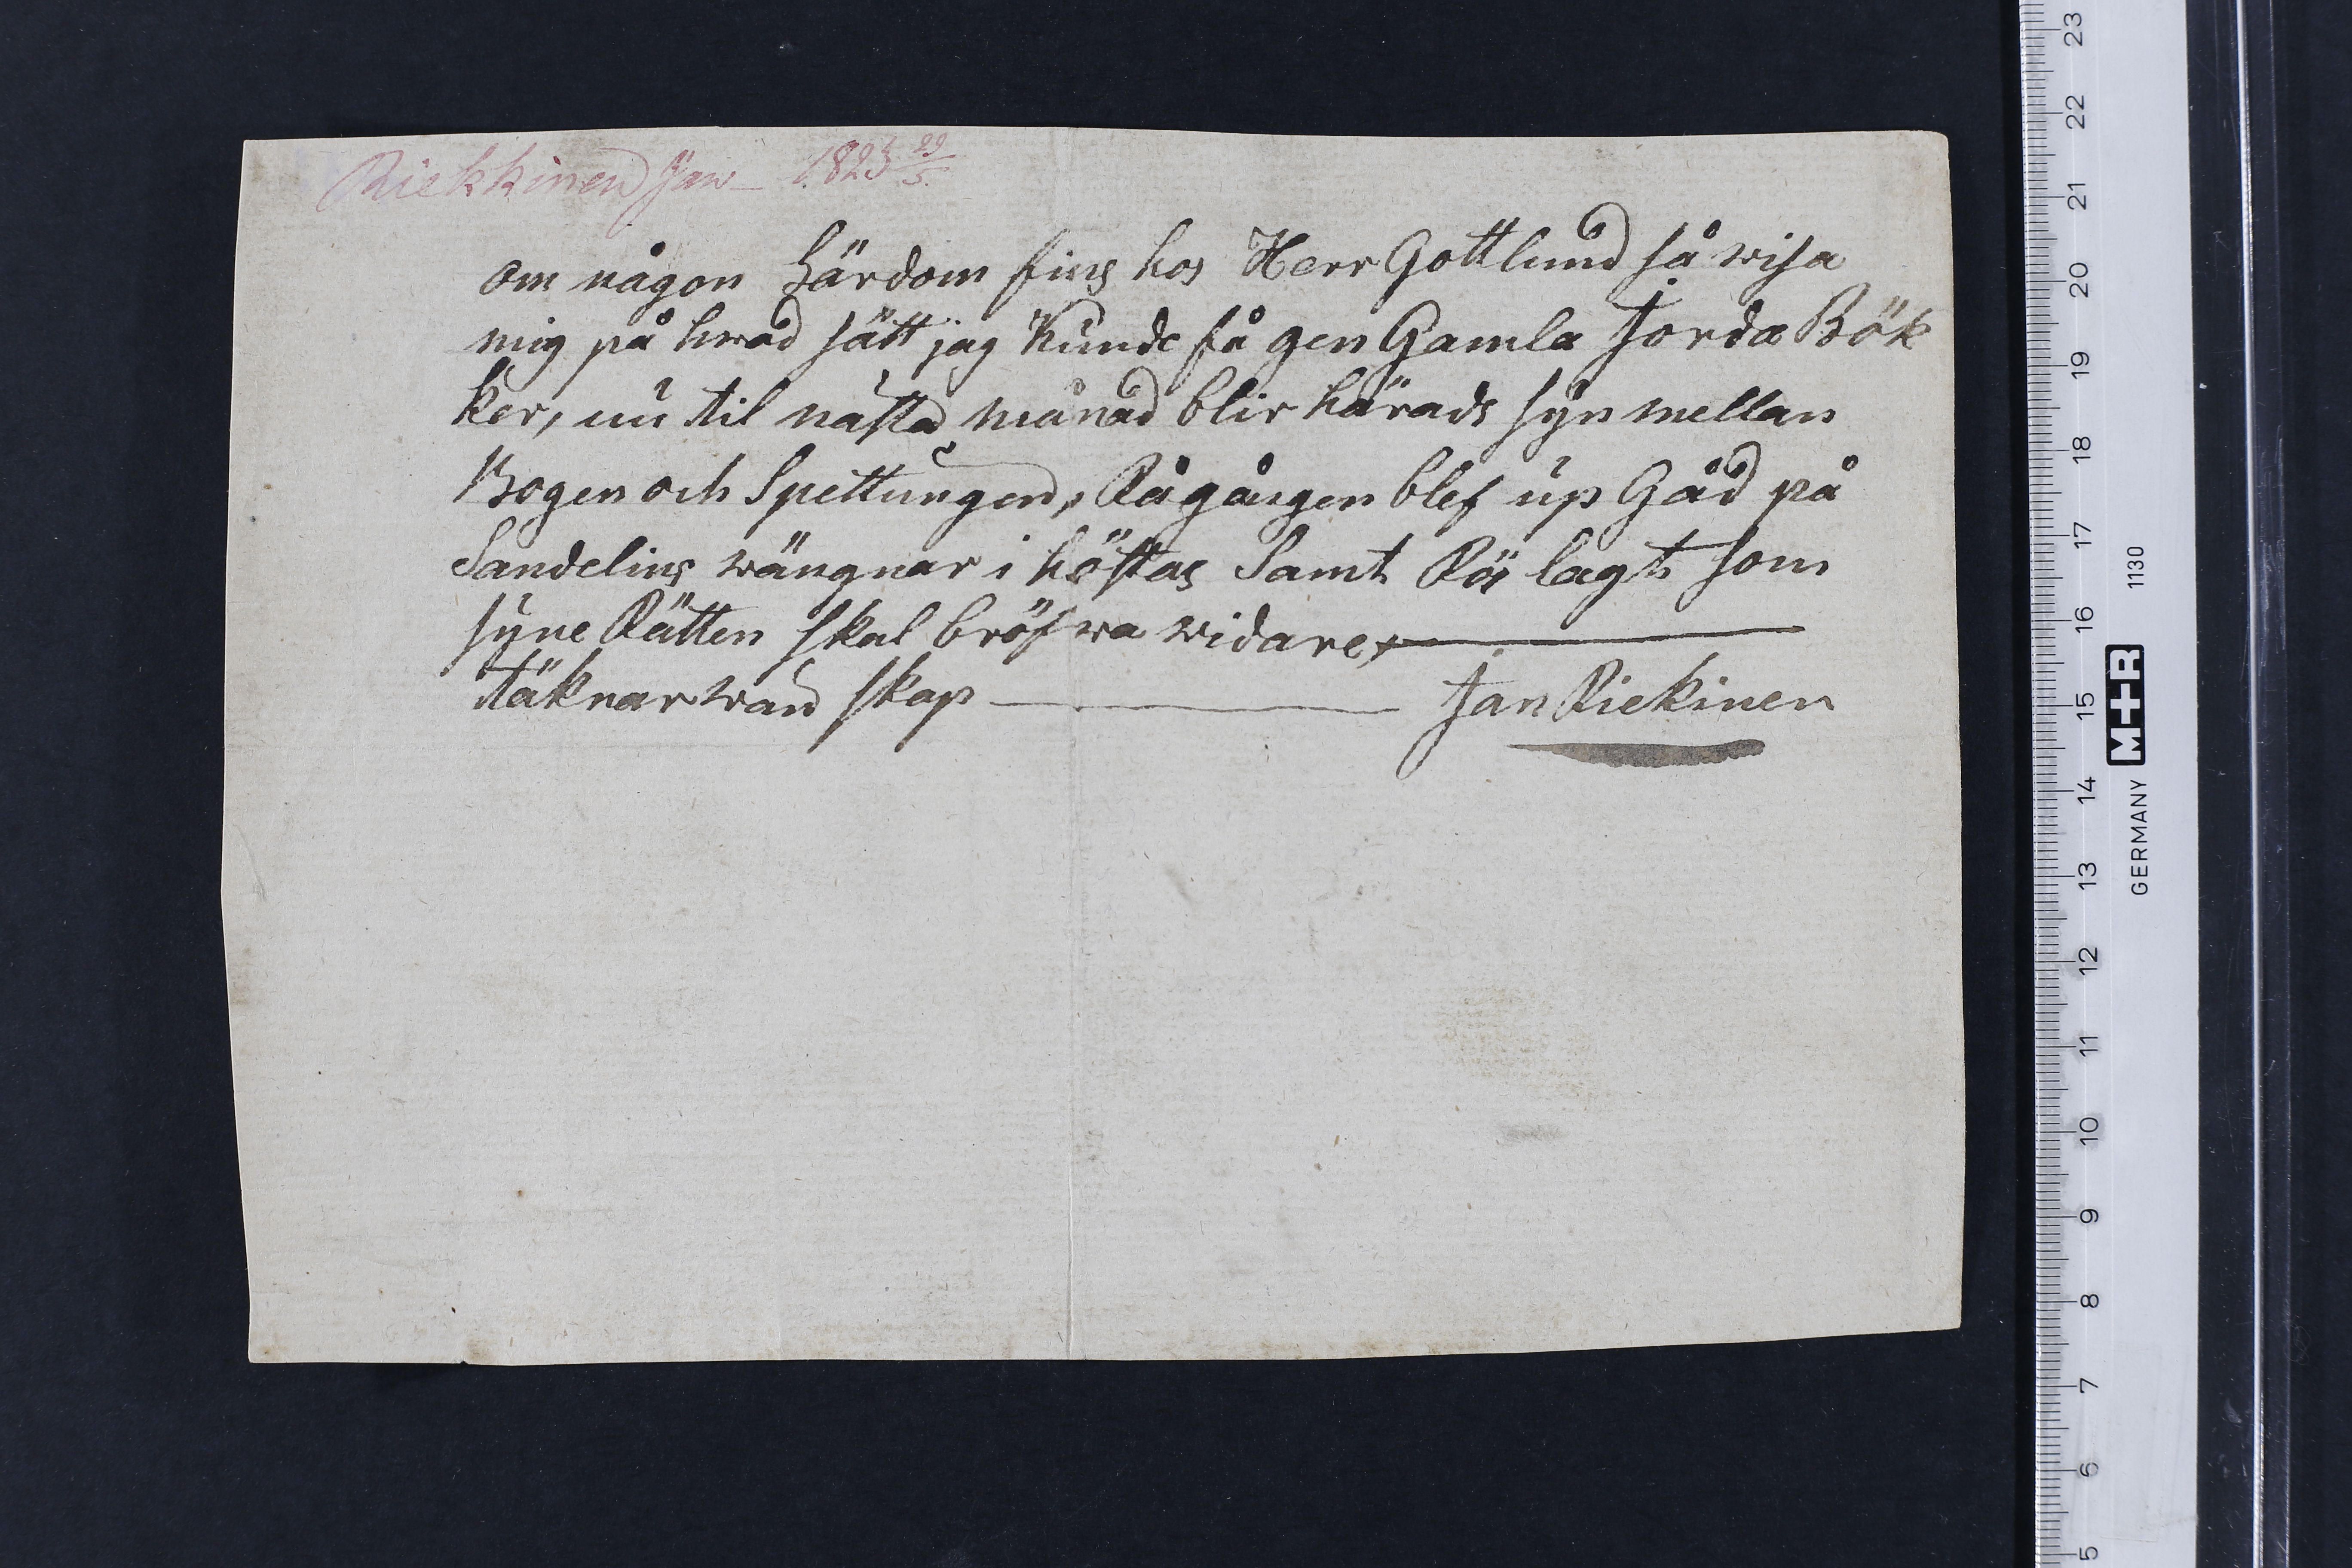 Riekkinen Jan 1823 29/5.
om någon Lärdom fins hos Herr Gottlund så wisa
mig på hwad sätt jag kunde få gen Gamla Jorda Bök
ker, nu til nästa månad blir härads syn mellan
Bogen och Spettungen, Rågången blef up Gåd på
Sandelins wängnar i höstas Samt Rör lagt som
syne Rätten skal bröfwa widare,
täknar wän skap Jan Riekinen
23
22
21
20
19
18
17
16
15
14
13
12
11
10
9
8
7
6
5
GERMANY M+R 1130